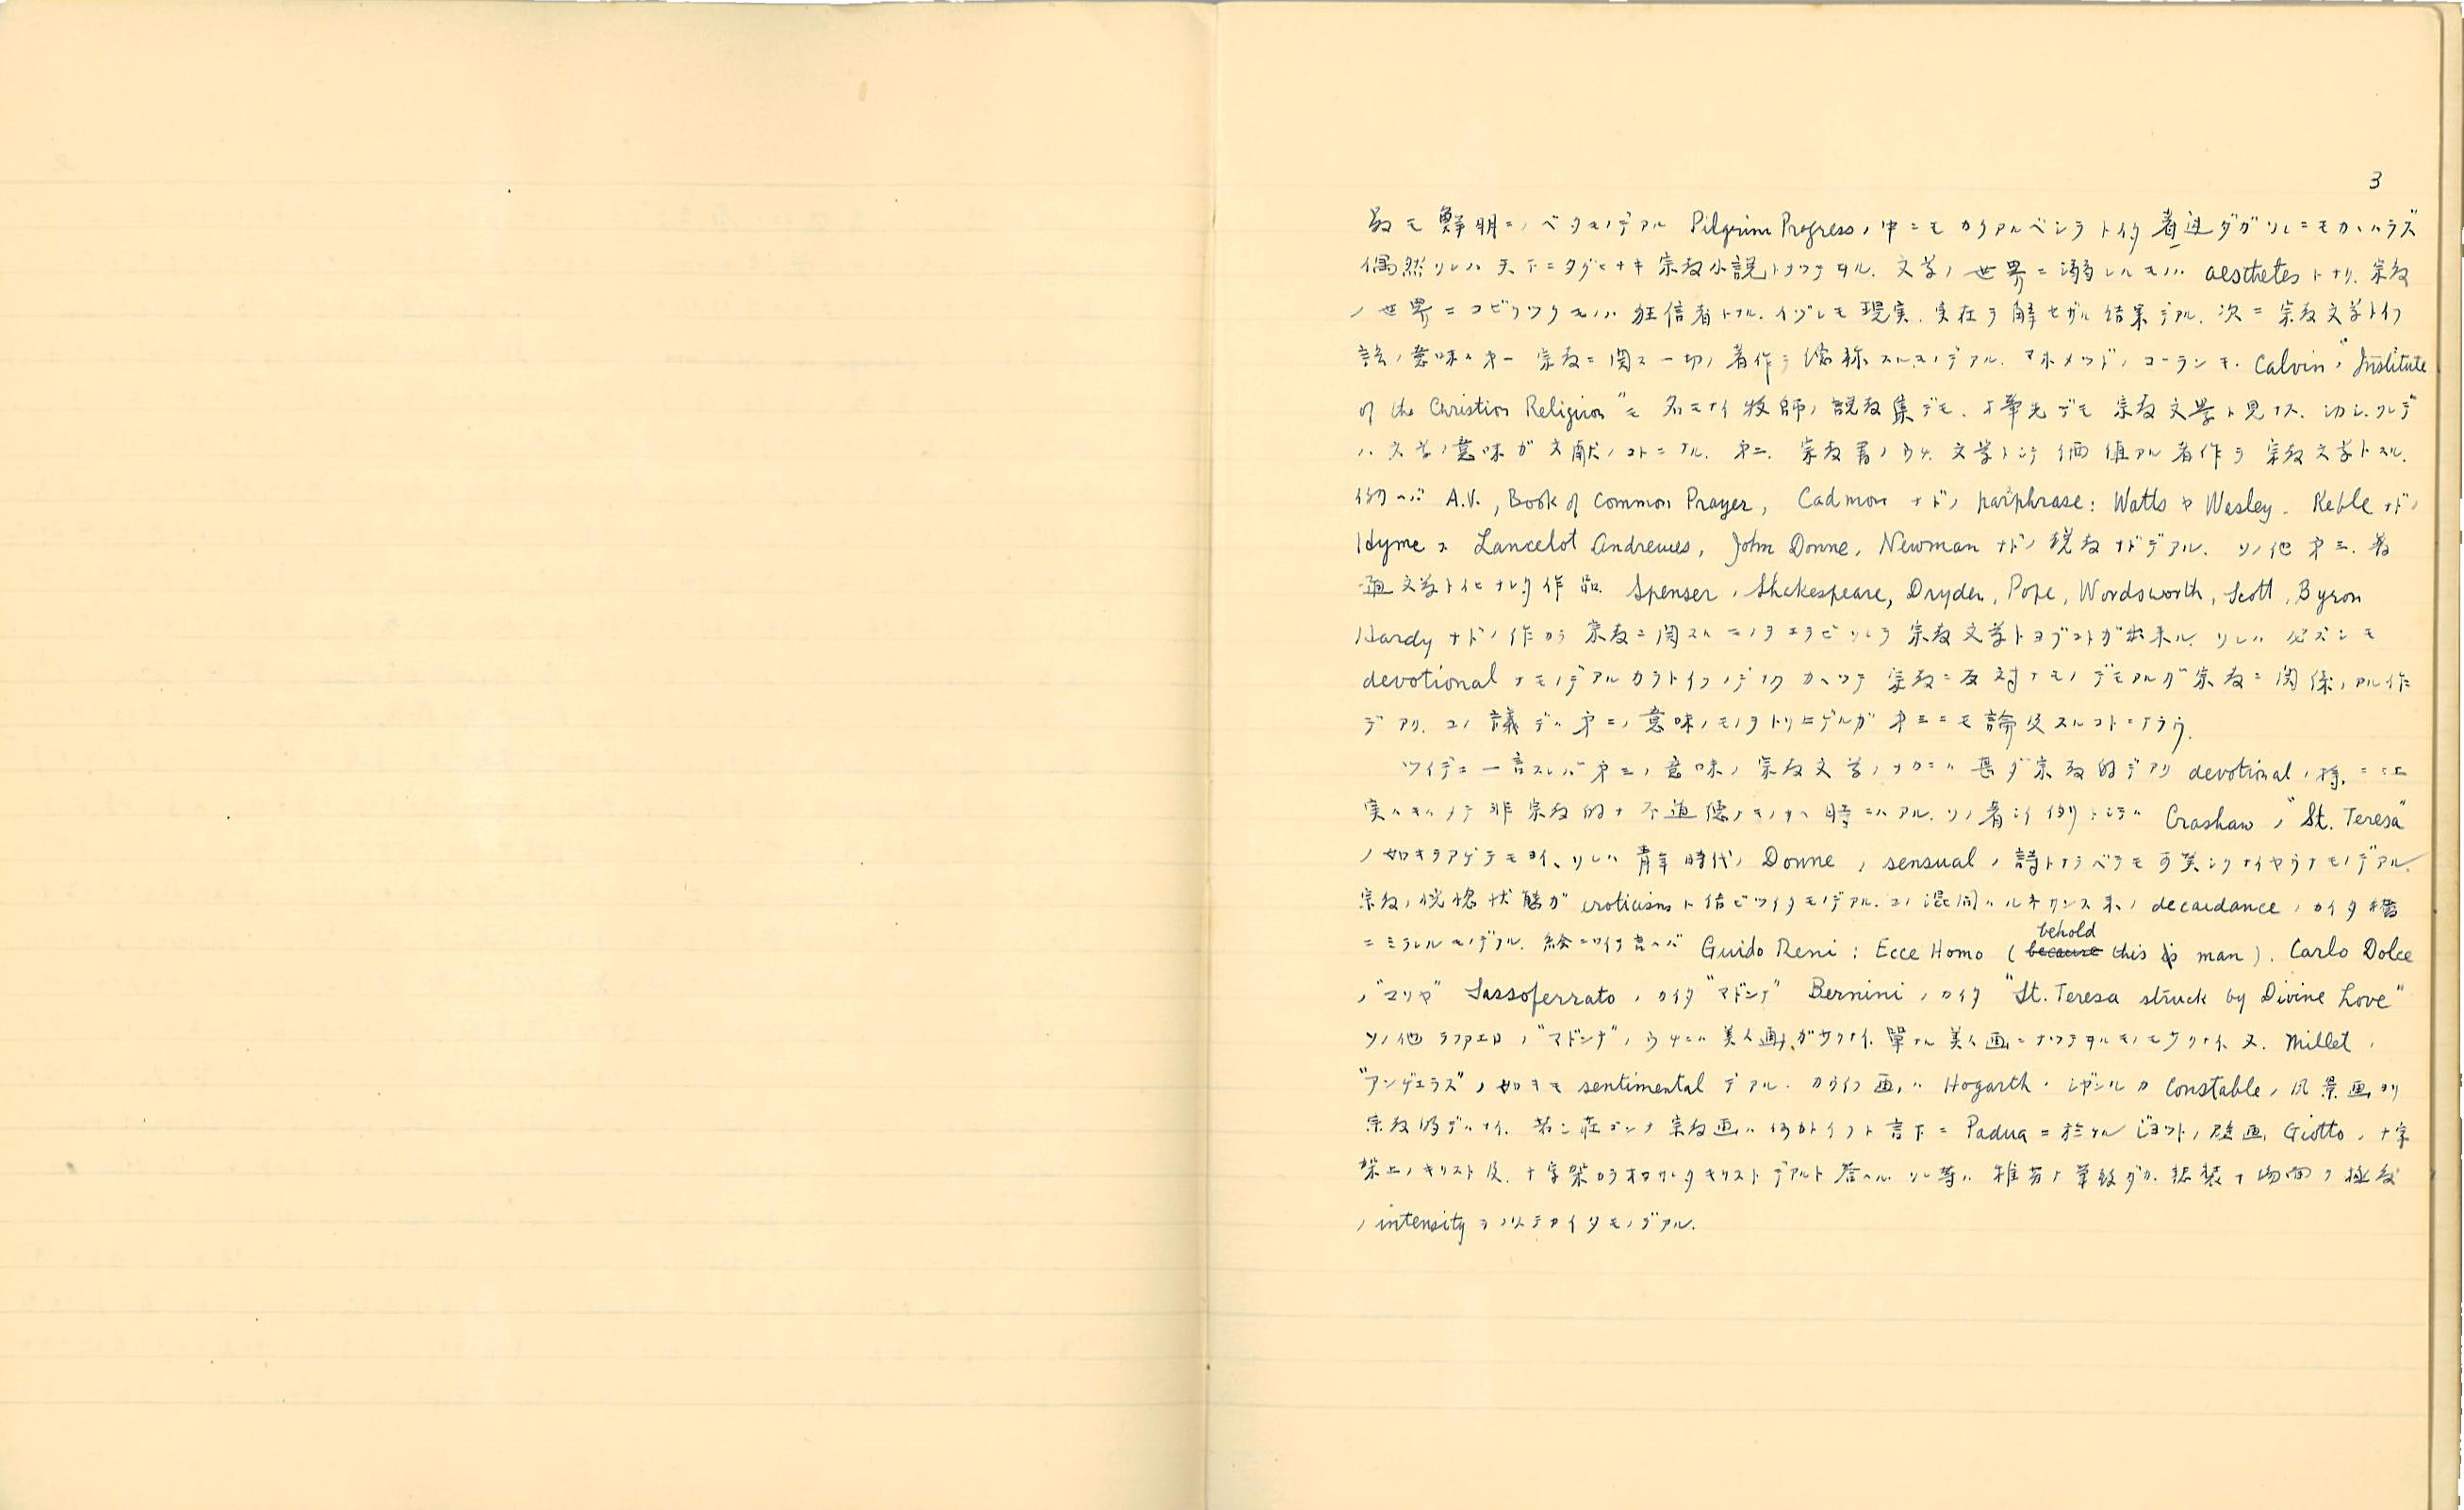 3
最モ鮮明ニノベタモノデアル Pilgrim Progress ノ中ニモ カクアルベシラトイフ 著述ダガソレニモカヽハラズ
偶然ソレハ天下ニタグヒナキ宗教小説トナツテヰル. 文学ノ世界ニ溺レルモノハ aesthetes トナリ. 宗教
ノ世界ニコビリツクモノハ狂信者トナル. イヅレモ現実. 実在ヲ解セザル結果デアル. 次ニ宗教文学トイフ
語ノ意味ハ才一 宗教ニ関ス一切ノ著作ヲ総称スルモノデアル. マホメッドノコーランモ. Calvin ノ "Institute
of the Christian Religion" モ 名モナイ牧師ノ説教集デモ. 才筆先デモ宗教文学ト見ナス. シカシ. ソレデ
ハ文学ノ意味ガ文献ノコトニナル. 才二. 宗教書ノウチ. 文学トシテ価値アル著作ヲ宗教文学トスル.
例ヘバ A.V., Book of Common Prayer, Cadmon ナドノ parphrase: Watts ヤ Wesley. Keble ナドノ
Hyme ヌ Lancelot Andrewes, John Donne, Newman ナドノ説教ナドデアル. ソノ他才三. 普
通文学トイヒナレタ作品. Spenser, Shakespeare, Dryden, Pope, Wordsworth, Scott, Byron
Hardy ナドノ作カラ宗教ニ関スルモノヲエラビソレヲ宗教文学トヨブコトガ出来ル. ソレハ必ズシモ
devotional ナモノデアルカラトイフノデナク カヘツテ宗教ニ反対ナモノデモアルガ宗教ニ関係ノアル作
デアリ. コノ講デハ才二ノ意味ノモノヲトリ上ゲルガ才三ニモ論及スルコトニナラウ.
ツイデニ一言スレバ才二ノ意味ノ宗教文学ノナカニハ甚ダ宗教的デアリ devotional ノ様ニミエ
実ハキハメテ非宗教的ナ不道徳ナモノサヘ時ニハアル. ソノ著シイ例トシテハ Crashaw ノ "St. Teresa"
ノ如キヲアゲテモヨイ. ソレハ青年時代ノ Donne ノ sensual ノ詩トナラベテモ可笑シクナイヤウナモノデアル.
宗教ノ恍惚状態ガ eroticism ト結ビツイタモノデアル. コノ混同ハルネサンス末ノ decardance ノカイタ絵
ニミラレルモノデアル. 絵ニツイテ言ヘバ Guido Reni: Ecce Homo (because behold this is man). Carlo Dolce
ノ"マリヤ" Sassoferrato ノカイタ "マドンナ" Bernini ノカイタ "St. Teresa struck by Divine Love"
ソノ他ラファエロノ"マドンナ"ノウチニハ美人画ガ少クナイ. 単ナル美人画ニナツテヰルモノモ少クナイ. 又. Millet ノ
"アンゲェラス"ノ如キモ sentimental デアル. カウイフ画ハ Hogarth カ Constable ノ風景画ヨリ
宗教的デハナイ. 若シ荘ゴンナ宗教画ハ何カトイフト言下ニ Padua ニ於ケルジヨットノ壁画 Giotto ノ十字
架上ノキリスト及. 十字架カラオロサレタキリストデアルト答ヘル. ソレ等ハ稚劣ナ筆致ダガ. 場面ヲ極度
ノ intensity ヲ以テカイタモノデアル.